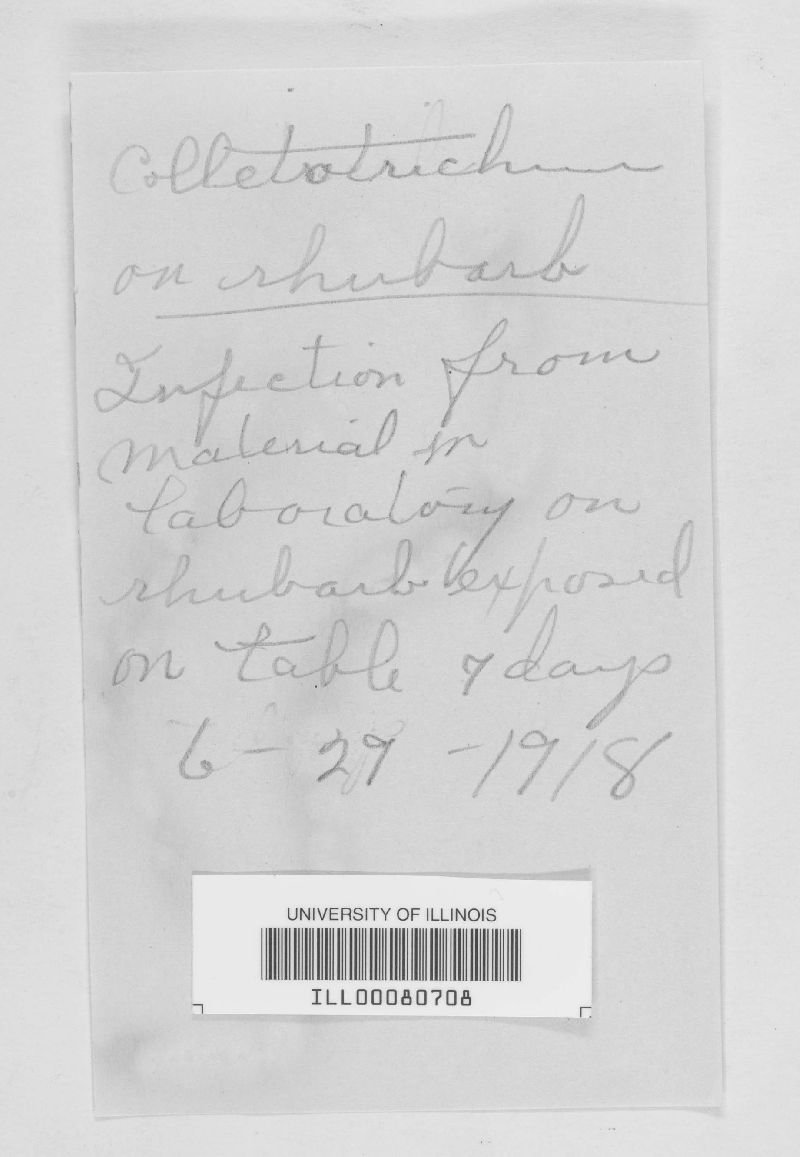 Colletotrichum
on rhubarb
Infection from
material in
laboratory on
rhubarb exposed
on table 7 days
6 - 29 - 1918
UNIVERSITY OF ILLINOIS
ILL00080708